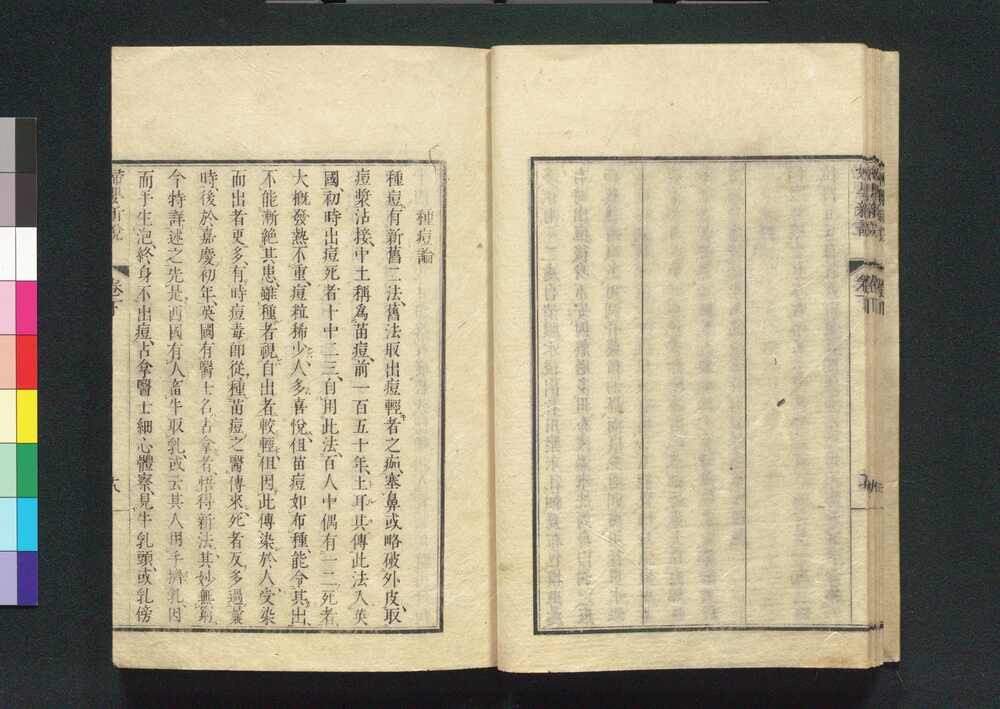 種痘論
種痘有新舊二法、舊法取出痘輕者之痂、塞鼻或略破外皮、取
痘漿沾接、中土稱為苗痘、前一百五十年、土耳其傳此法入英
國、初時出痘死者十中二三、自用此法、百人中偶有一二死者、
大概發熱不重、痘粒稀少、人多喜悅、但苗痘如布種、能令其出、
不能漸絕其患、雖種者視自出者較輕、但因此傳染於人、受染
而出者更多、有時痘毒即從種苗痘之醫傳來、死者反多過曩
時、後於嘉慶初年、英國有醫士名占拿者、悟得新法、其妙無窮
今特詳述之、先是西國有人畜牛取乳、或云其人用手擠乳、因
而手生泡、終身不出痘、占拿醫士細心體察、見牛乳頭、或乳傍
婦嬰新說